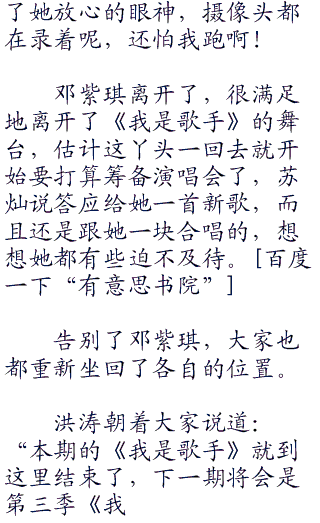 了她放心的眼神，摄像头都
在录着呢，还怕我跑啊！
邓紫琪离开了，很满足
地离开了《我是歌手》的舞
台，估计这丫头一回去就开
始要打算筹备演唱会了，苏
灿说答应给她一首新歌，而
且还是跟她一块合唱的，想
想她都有些迫不及待。[百度
一下“有意思书院”]
告别了邓紫琪，大家也
都重新坐回了各自的位置。
洪涛朝着大家说道：
“本期的《我是歌手》就到
这里结束了，下一期将会是
第三季《我